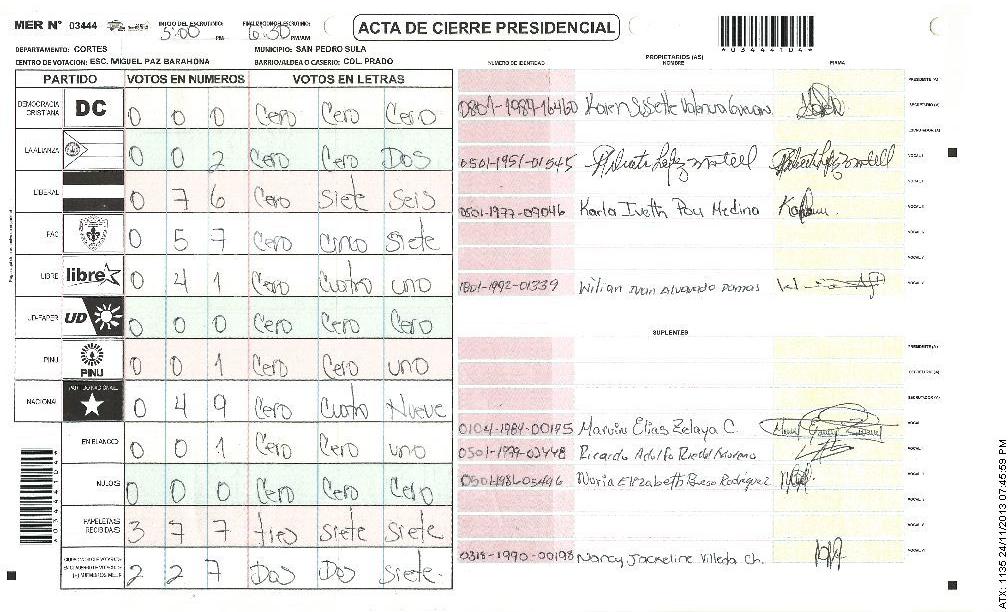 MER N° 03444 INICIO DEL ESCRUTINIO: 5:00 PM FINALIZACION ESCRUTINIO: 6:30 PM/AM ACTA DE CIERRE PRESIDENCIAL
*03444104*
DEPARTAMENTO: CORTES MUNICIPIO: SAN PEDRO SULA
CENTRO DE VOTACION: ESC. MIGUEL PAZ BARAHONA BARRIO/ALDEA O CASERIO: COL. PRADO
PARTIDO VOTOS EN NUMEROS VOTOS EN LETRAS
DEMOCRACIA CRISTIANA DC 0 0 0 Cero Cero Cero
LA ALIANZA 0 0 2 Cero Cero Dos
LIBERAL 0 7 6 Cero Siete Seis
PAC 0 5 7 Cero cinco Siete
LIBRE libre 0 4 1 Cero Cuatro uno
UD-FAPER UD 0 0 0 Cero Cero Cero
PINU PINU 0 0 1 Cero Cero uno
NACIONAL PARTIDO NACIONAL 0 4 9 Cero Cuatro Nueve
EN BLANCO 0 0 1 Cero Cero uno
NULOS 0 0 0 Cero Cero Cero
PAPELETAS RECIBIDAS 3 7 7 tres Siete Siete
2 2 7 Dos Dos Siete.
PROPIETARIOS (AS)
NUMERO DE IDENTIDAD NOMBRE FIRMA
PRESIDENTE (A)
0801-1984-16460 Karen SECRETARIO (A)
ESCRUTADOR (A)
0501-1951-01545 VOCAL I
0501-1977-09046 Karla Iveth Pou Medina
1801-1992-01339 Wilian Ivan Alvarado
SUPLENTES
PRESIDENTE (A)
SECRETARIO (A)
ESCRUTADOR (A)
0104-1984-00195 Marvin Elias Zelaya C.
0501-1979-03448 Ricardo Adolfo
0501-1986-05496 Nuria Elizabeth Rodriguez
0318-1990-00198 Nancy Jackeline Villeda Ch.
ATX: 1135 24/11/2013 07:45:59 PM